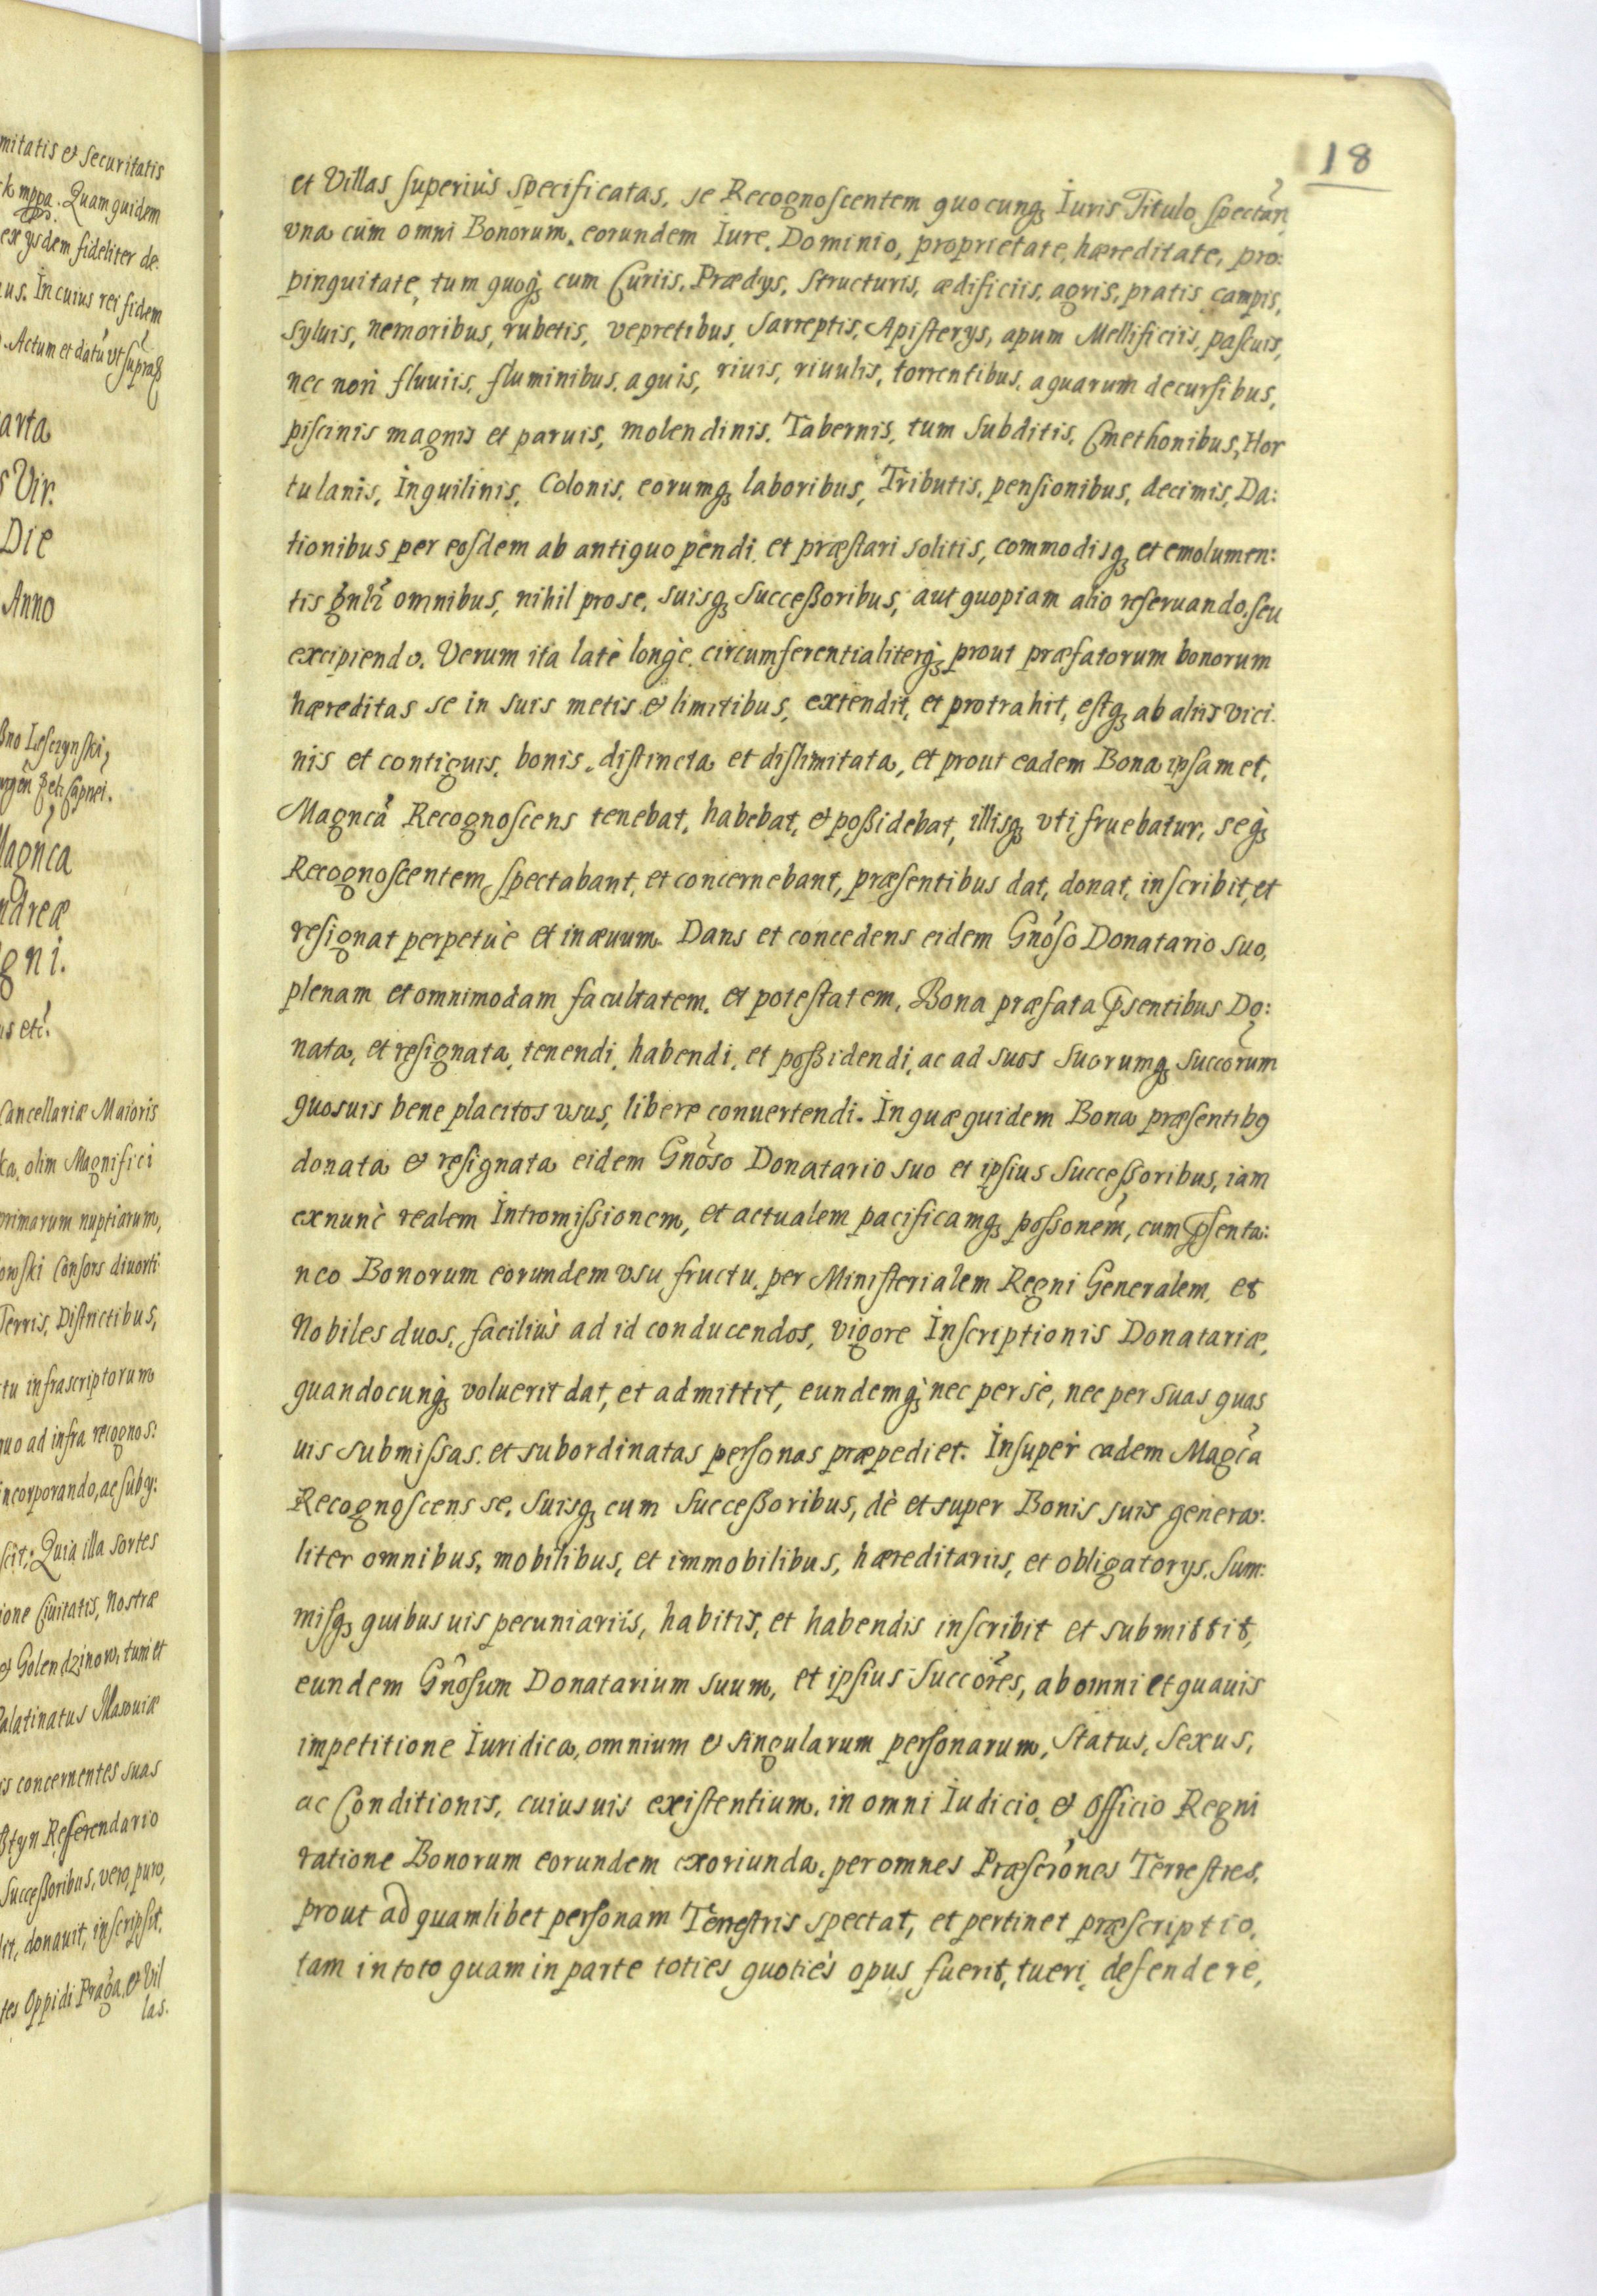 mitatis & securitatis
k mppa. Quam quidem
ex ysdem fideliter de:
us. In cuius rei fidem
. Actum et datũ vt supra
arta
s Vir.
Die
Anno
ßno Lesczynski,
Magnca
ndreæ
gni.
us etc.
Cancellariæ Maioris
ka, olim Magnifici
primarum nuptiarum,
owski Consors diuorti
Terris, Districtibus,
tu infrascriptorum
quo ad infra recognos:
incorporando, ac subij:
scit: Quia illa sortes
ione Ciuitatis, Nostræ
& Golendzinow, tum et
Palatinatus Masouiæ
is concernentes suas
ßtyn Referendario
Successoribus, vero, puro,
it, donauit, inscripsit,
tes Oppidi Praga, & Vil
las.
18
et Villas superius specificatas, se Recognoscentem quocunqȝ Iuris Titulo spectañ,
vna cum omni Bonorum, eorundem Iure, Dominio, proprietate, hæreditate, pro:
pinquitate, tum quoqȝ cum Curiis, Prædijs, structuris, ædificiis, agris, pratis campis,
syluis, nemoribus, rubetis, vepretibus, sarreptis, Apisterijs, apum Mellificiis, pascuis,
nec non fluuiis, fluminibus, aquis, riuis, riuulis, torrentibus, aquarum decursibus,
piscinis magnis et paruis, molendinis, Tabernis, tum Subditis, Cmethonibus, Hor
tulanis, Inquilinis, Colonis, eorumqȝ laboribus, Tributis, pensionibus, decimis, Da:
tionibus per eosdem ab antiquo pendi et præstari solitis, commodisqȝ et emolumen:
tis gnlr omnibus, nihil pro se, suisqȝ Successoribus, aut quopiam alio reseruando, seu
excipiendo. Verum ita latè longè, circumferentialiterqȝ prout præfatorum bonorum
hæreditas se in suis metis & limitibus, extendit, et protrahit, estqȝ ab aliis vici
nis et contiguis, bonis, distincta et dislimitata, et prout eadem Bona ipsamet,
Magncã Recognoscens tenebat, habebat, & possidebat, illisqȝ vti fruebatur, seqȝ
Recognoscentem, spectabant, et concernebant, præsentibus dat, donat, inscribit, et
resignat perpetuè et in æuum. Dans et concedens eidem Gnoso Donatario suo,
plenam et omnimodam facultatem, et potestatem, Bona præfata p̃sentibus Do:
nata, et resignata, tenendi, habendi, et possidendi, ac ad suos suorumqȝ succorum
quosuis bene placitos vsus, libere conuertendi. In quæquidem Bona præsentibꝰ
donata & resignata eidem Gnoso Donatario suo et ipsius Successoribus, iam
exnunc realem Intromissionem, et actualem pacificamqȝ possonem, cum p̃senta:
neo Bonorum eorundem vsu fructu, per Ministerialem Regni Generalem, et
Nobiles duos, facilius ad id conducendos, vigore Inscriptionis Donatariæ,
quandocunqȝ voluerit dat, et admittit, eundemqȝ nec per se, nec per suas quas
uis submissas, et subordinatas personas præpediet. Insuper eadem Magca
Recognoscens se, suisqȝ cum Successoribus, de et super Bonis suis genera:
liter omnibus, mobilibus, et immobilibus, hæreditariis, et obligatorijs, sum:
misqȝ quibusuis pecuniariis, habitis, et habendis inscribit et submittit,
eundem Gnosum Donatarium suum, et ipsius Succores, ab omni et quauis
impetitione Iuridica, omnium & singularum personarum, status, sexus,
ac Conditionis, cuiusuis existentium, in omni Iudicio & Officio Regni
ratione Bonorum eorundem exoriunda, per omnes Præsciones Terrestres,
prout ad quamlibet personam Terrestris spectat, et pertinet præscriptio,
tam in toto quam in parte toties quoties opus fuerit, tueri, defendere,